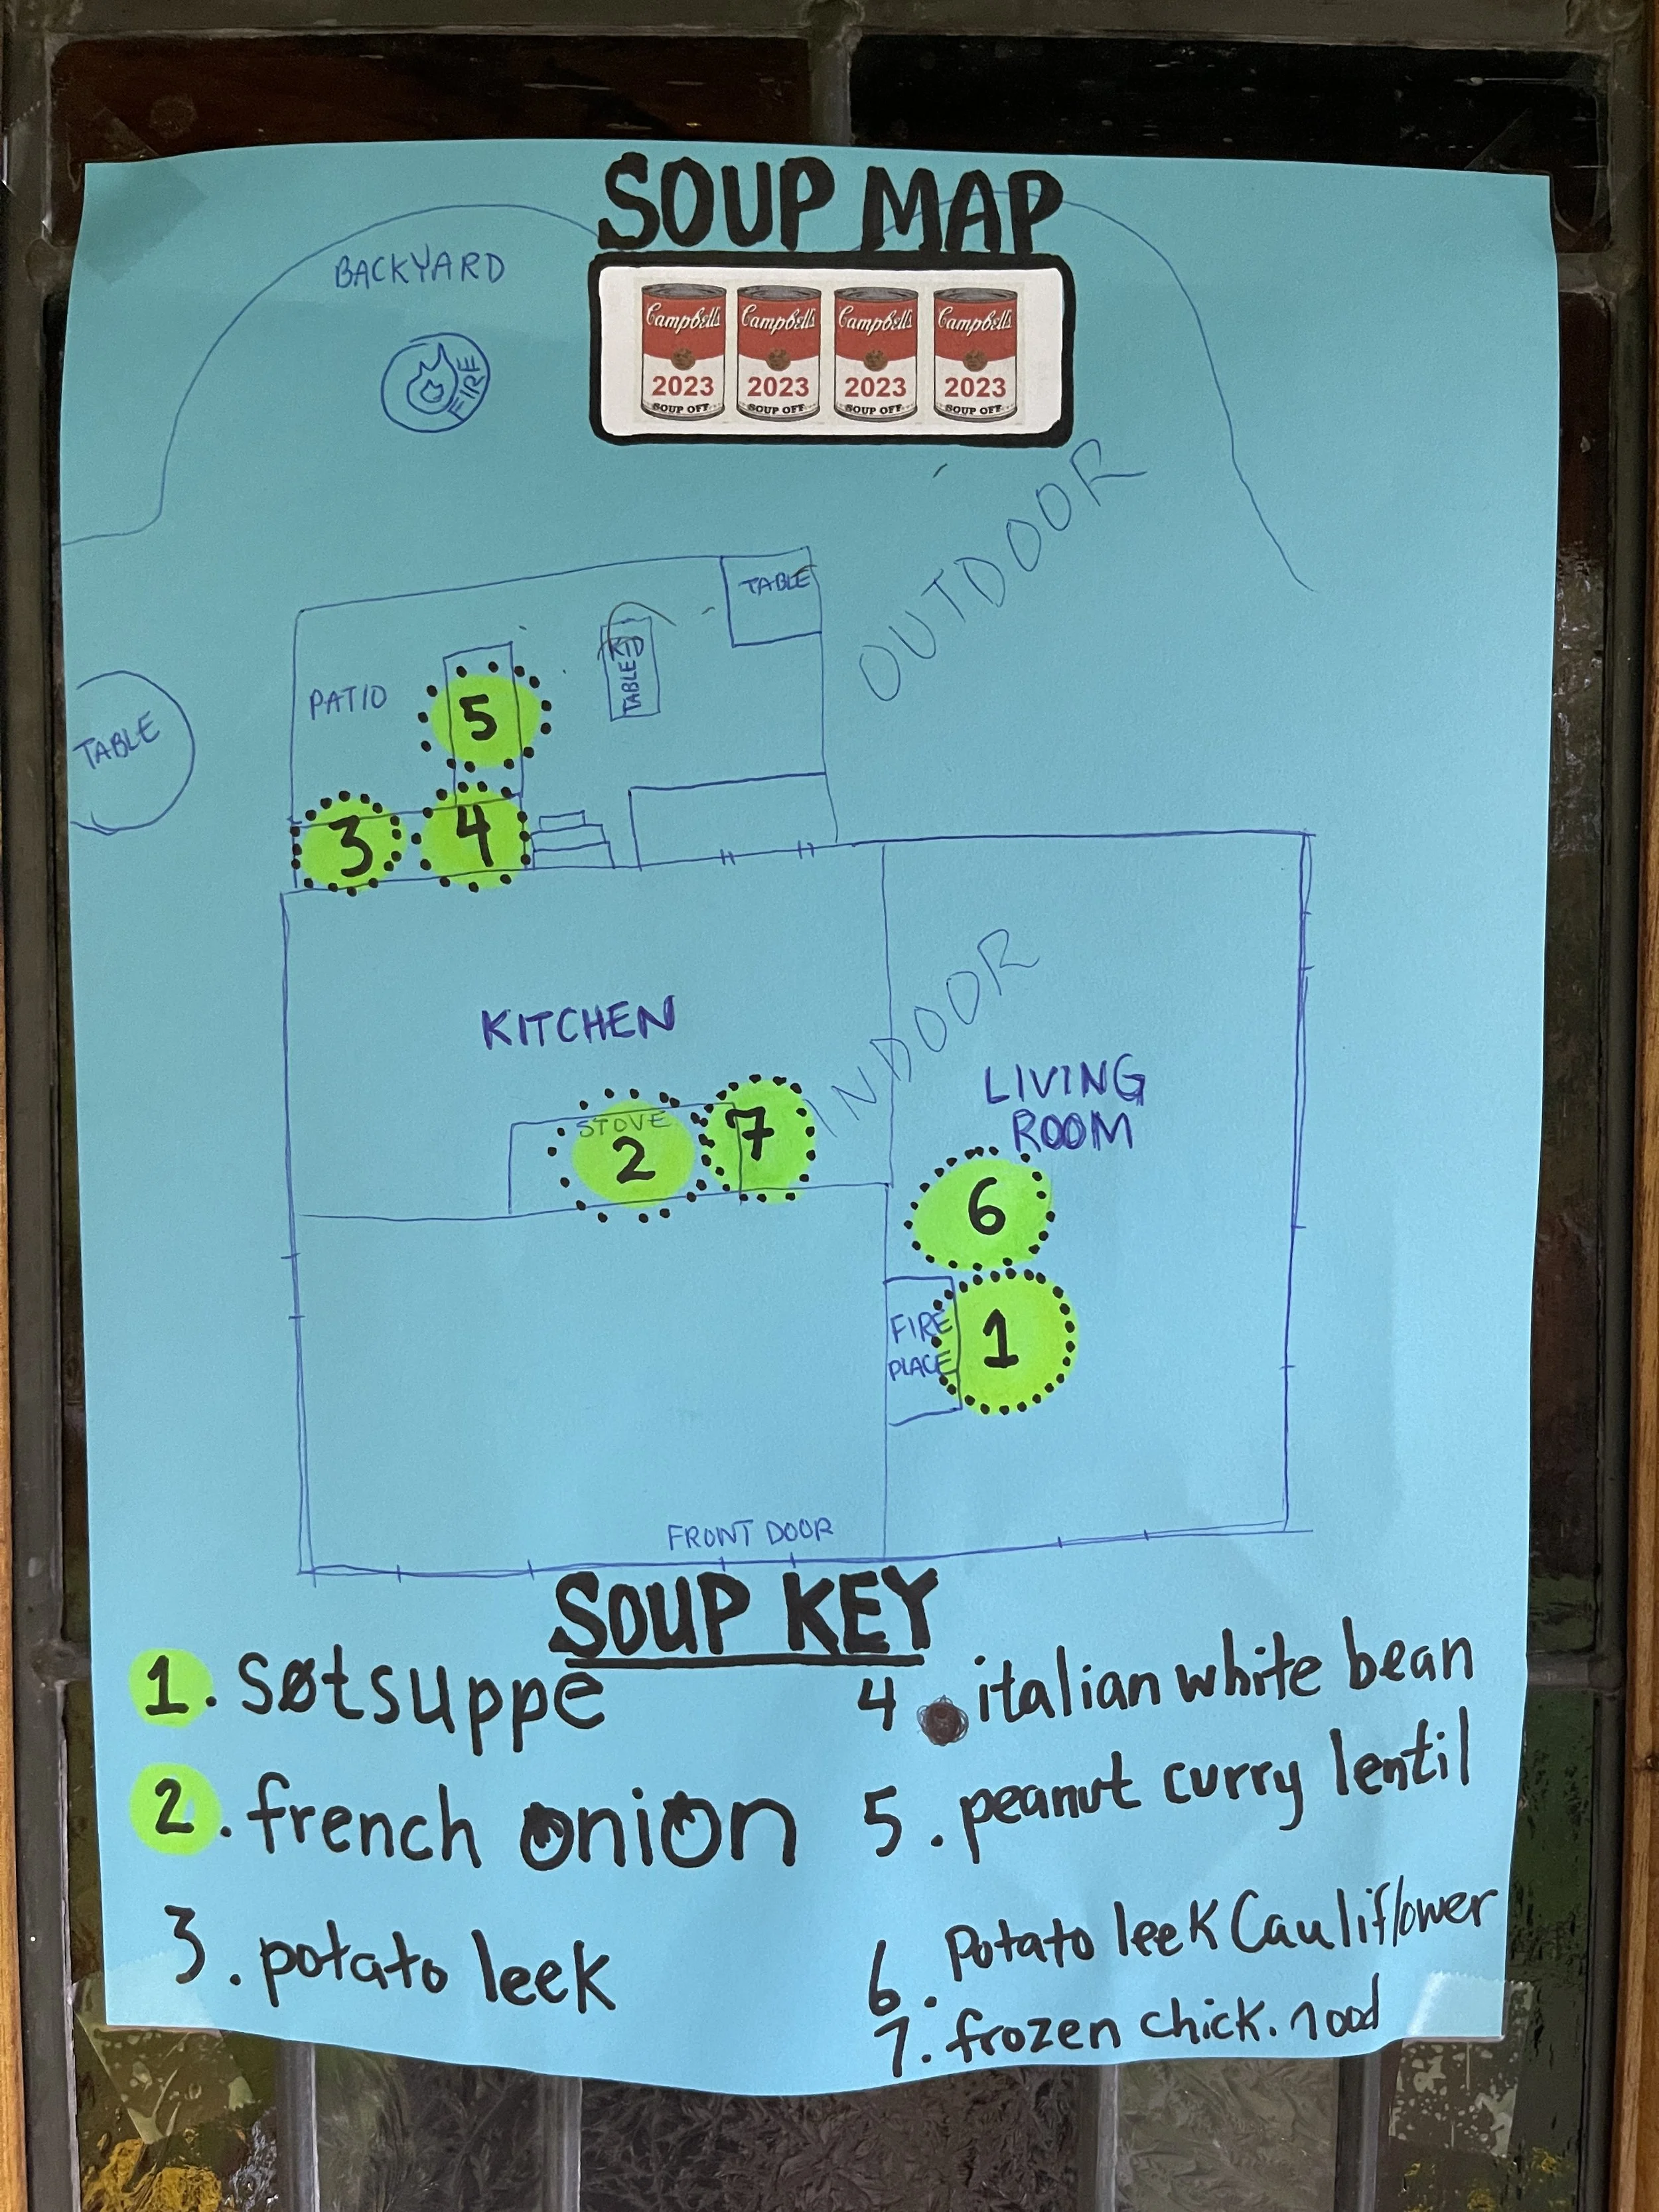 SOUP MAP
BACKYARD
FIRE
Campbell's Campbell's Campbell's Campbell's
2023 2023 2023 2023
SOUP OFF SOUP OFF SOUP OFF SOUP OFF
OUTDOOR
TABLE
TABLE
PATIO
5
TABLE
3 4
KITCHEN
INDOOR
LIVING
ROOM
STOVE
2 7
6
FIRE
PLACE
1
FRONT DOOR
SOUP KEY
1. søtsuppe
2. french onion
3. potato leek
4. italian white bean
5. peanut curry lentil
6. Potato leek Cauliflower
7. frozen chick. nood